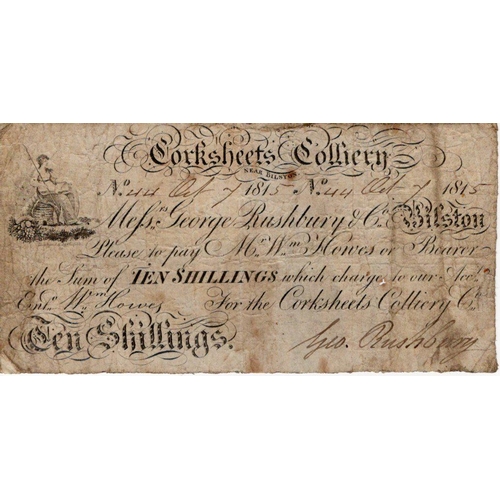 Corksheets Colliery
NEAR BILSTON
No. 44 Oct 7 1815 No. 44 Oct 7 1815
Messrs. George Rushbury & Co. Bilston
Please to pay Mr. Wm. Howes or Bearer
the Sum of TEN SHILLINGS which charge to our Acct.
Entd. Wm. Howes For the Corksheets Colliery Co.
Ten Shillings. Geo. Rushbury